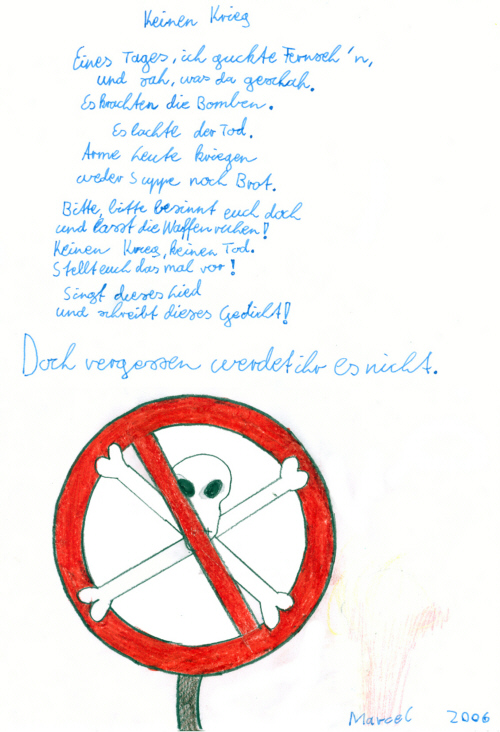 Keinen Krieg
Eines Tages, ich guckte Fernseh'n,
und sah, was da geschah.
Es krachten die Bomben.
Es lachte der Tod.
Arme Leute kriegen
weder Suppe noch Brot.
Bitte, bitte besinnt euch doch
und lasst die Waffen ruhen!
Keinen Krieg, keinen Tod.
Stellt euch das mal vor!
Singt dieses Lied
und schreibt dieses Gedicht!
Doch vergessen werdet ihr es nicht.
Marcel 2006